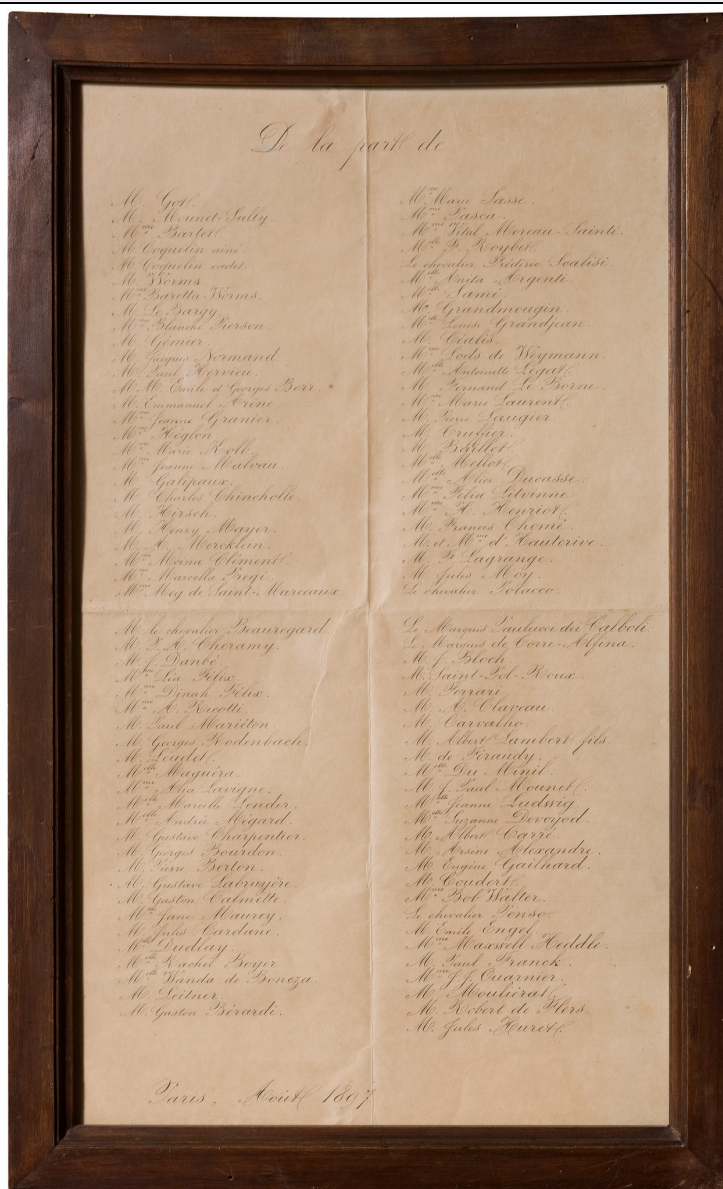 De la part de
M. Got.
M. Mounet-Sully.
Mme Bartet.
M. Coquelin aîné.
M. Coquelin cadet.
M. Worms.
Mme Baretta-Worms.
M. Le Bargy.
Mme Blanche Pierson.
M. Gémier.
M. Jacques Normand.
M. Paul Hervieu.
M.M. Emile et Georges Berr.
M. Emmanuel Arène.
Mme Jeanne Granier.
Mme Héglon.
Mme Marie Kolb.
Mme Jeanne Malvau.
M. Galipaux.
M. Charles Chincholle.
M. Hirsch.
M. Henry Mayer.
M. A. Mercklein.
Mme Moïna Clément.
Mme Marcella Pregi.
Mme Meg de Saint-Marceaux.
M. le chevalier Beauregard.
M. P. A. Cheramy.
M. J. Danbé.
Mme Lia Félix.
Mme Dinah Félix.
Mme A. Ricotti.
M. Paul Mariéton.
M. Georges Rodenbach.
M. Leadet.
Mlle Maguéra.
Mme Alya Lavigne.
Mlle Marcelle Lender.
Mlle Andrée Mégard.
M. Gustave Charpentier.
M. Georges Bourdon.
M. Pierre Berton.
M. Gustave Labruyère.
M. Gaston Calmette.
Mme Jane Maurey.
M. Jules Cardane.
Mlle Dudlay.
Mlle Rachel Boyer.
Mlle Wanda de Boncza.
M. Leitner.
M. Gaston Bérardi.
Mme Marie Sasse.
Mme Pasca.
Mme Vital Moreau-Sainti.
Mlle F. Roybet.
Le chevalier Frédéric Scalisi.
Mlle Anita Argenti.
Mlle Lami.
M. Grandmougin.
Mlle Louise Grandjean.
M. Céalis.
Mme Fods de Weymann.
Mlle Antoinette Légat.
M. Fernand Le Borne.
Mme Marie Laurent.
M. Pierre Laugier.
M. Truffier.
M. Baillet.
Mlle Mellot.
Mlle Alice Ducasse.
Mme Félia Litvinne.
Mme H. Henriot.
M. Francis Thomé.
M. et Mme d'Hauterive.
M. F. Lagrange.
M. Jules Moy.
Le chevalier Polacco.
Le Marquis Paulucci dei Calboli.
Le Marquis de Torre-Alfina.
M. J. Bloch.
M. Saint-Pol-Roux.
M. Ferrari.
M. A. Claveau.
M. Carvalho.
M. Albert Lambert fils.
M. de Féraudy.
Mlle Du Minil.
M. J. Paul Mounet.
Mlle Jeanne Ludwig.
Mlle Suzanne Devoyod.
M. Albert Carré.
M. Arsène Alexandre.
M. Eugène Gailhard.
M. Coudert.
Mme Bob Walter.
Le chevalier Penso.
M. Emile Engel.
Mme Maxwell Heddle.
M. Paul Franck.
Mme J. J. Ouarnier.
M. Mouliérat.
M. Robert de Flers.
M. Jules Huret.
Paris, Août 1897